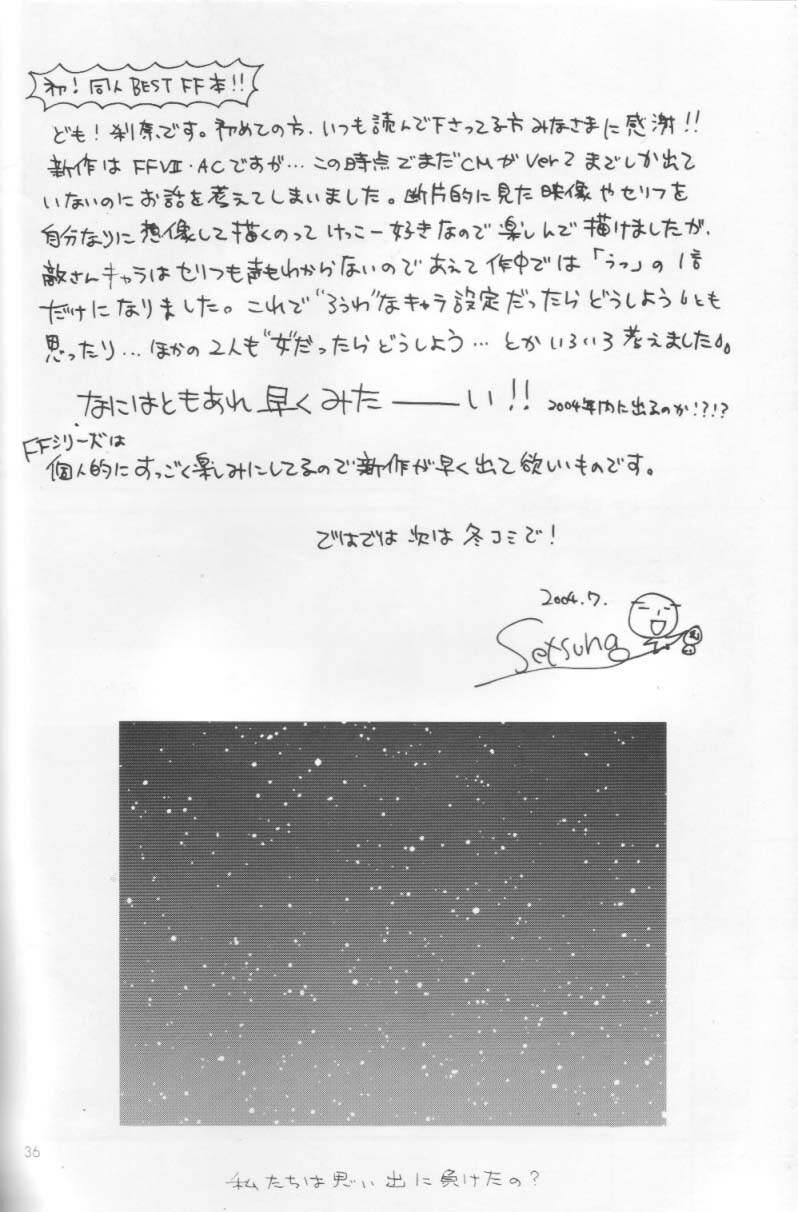 初!同人BEST FF本!!
ども!刹奈です。初めての方、いつも読んで下さってる方みなさまに感謝!!
新作はFFⅦ・ACですが…この時点でまだCMがVer2までしか出て
いないのにお話を考えてしまいました。断片的に見た映像やセリフを
自分なりに想像して描くのってけっこー好きなので楽しんで描けましたが、
敵さんキャラはセリフも声もわからないのであえて作中では「うっ」の1言
だけになりました。これで"ろうわ"なキャラ設定だったらどうしようとも
思ったり…ほかの2人も"女"だったらどうしよう…とかいろいろ考えました。
なにはともあれ早くみたーい!!2004年内に出るのか!?!?
FFシリーズは
個人的にすっごく楽しみにしてるので新作が早く出て欲しいものです。
ではでは次は冬コミで!
2004.7.
Setsuna
36
私たちは思い出に負けたの?